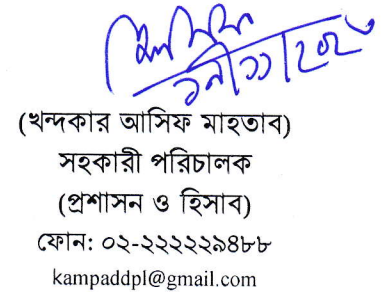 (খন্দকার আসিফ মাহতাব)
সহকারী পরিচালক
(প্রশাসন ও হিসাব)
ফোন: ০২-২২২২২৯৪৮৮
kampaddpl@gmail.com